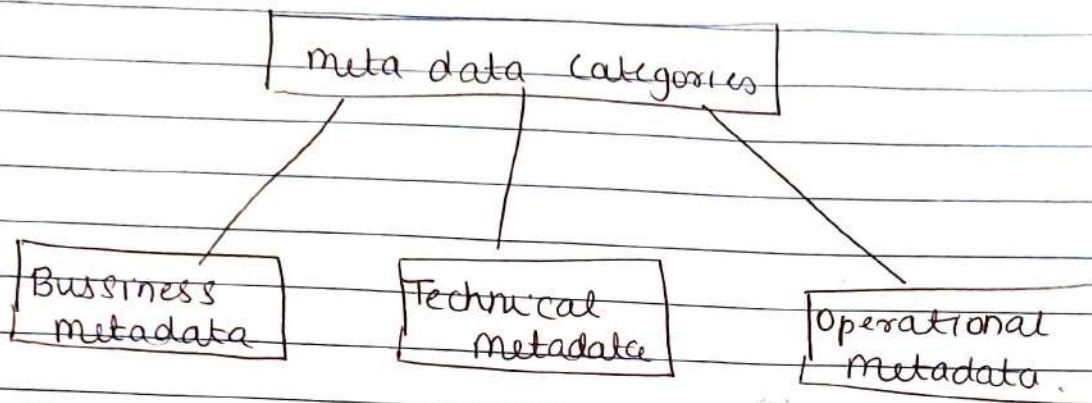 meta data categories
Bussiness
metadata
Technical
metadata
Operational
metadata.